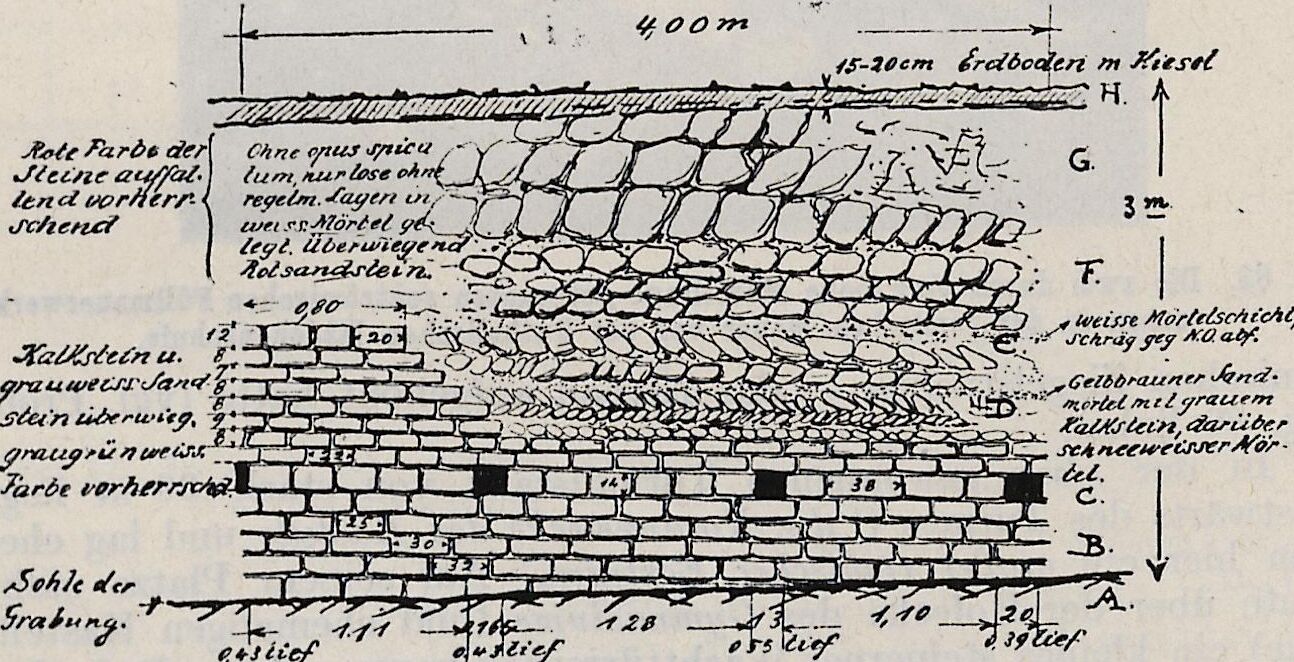 4,00 m
15-20cm Erdboden m Kiesel
H.
Rote Farbe der
Steine auffal.
lend vorherr-
schend
Ohne opus spica
tum, nur lose ohne
regelm. Lagen in
weiss Mörtel ge-
legt. Überwiegend
Rotsandstein.
G.
3 m
F.
0,80
12
20
8
7
9
8
9
8
Kalkstein u.
grauweiss Sand
stein überwieg.
graugrünweiss.
Farbe vorherrschd.
E
weisse Mörtelschicht,
schräg geg N.O. abf.
D
Gelbbrauner Sand-
mörtel mit grauem
Kalkstein, darüber
schneeweisser Mör-
tel.
22
14
38
C.
25
30
B.
32
Sohle der
Grabung.
A.
1.11
1 28
13
1,10
20
0,43 tief
0,43 tief
0,55 tief
0,39 tief